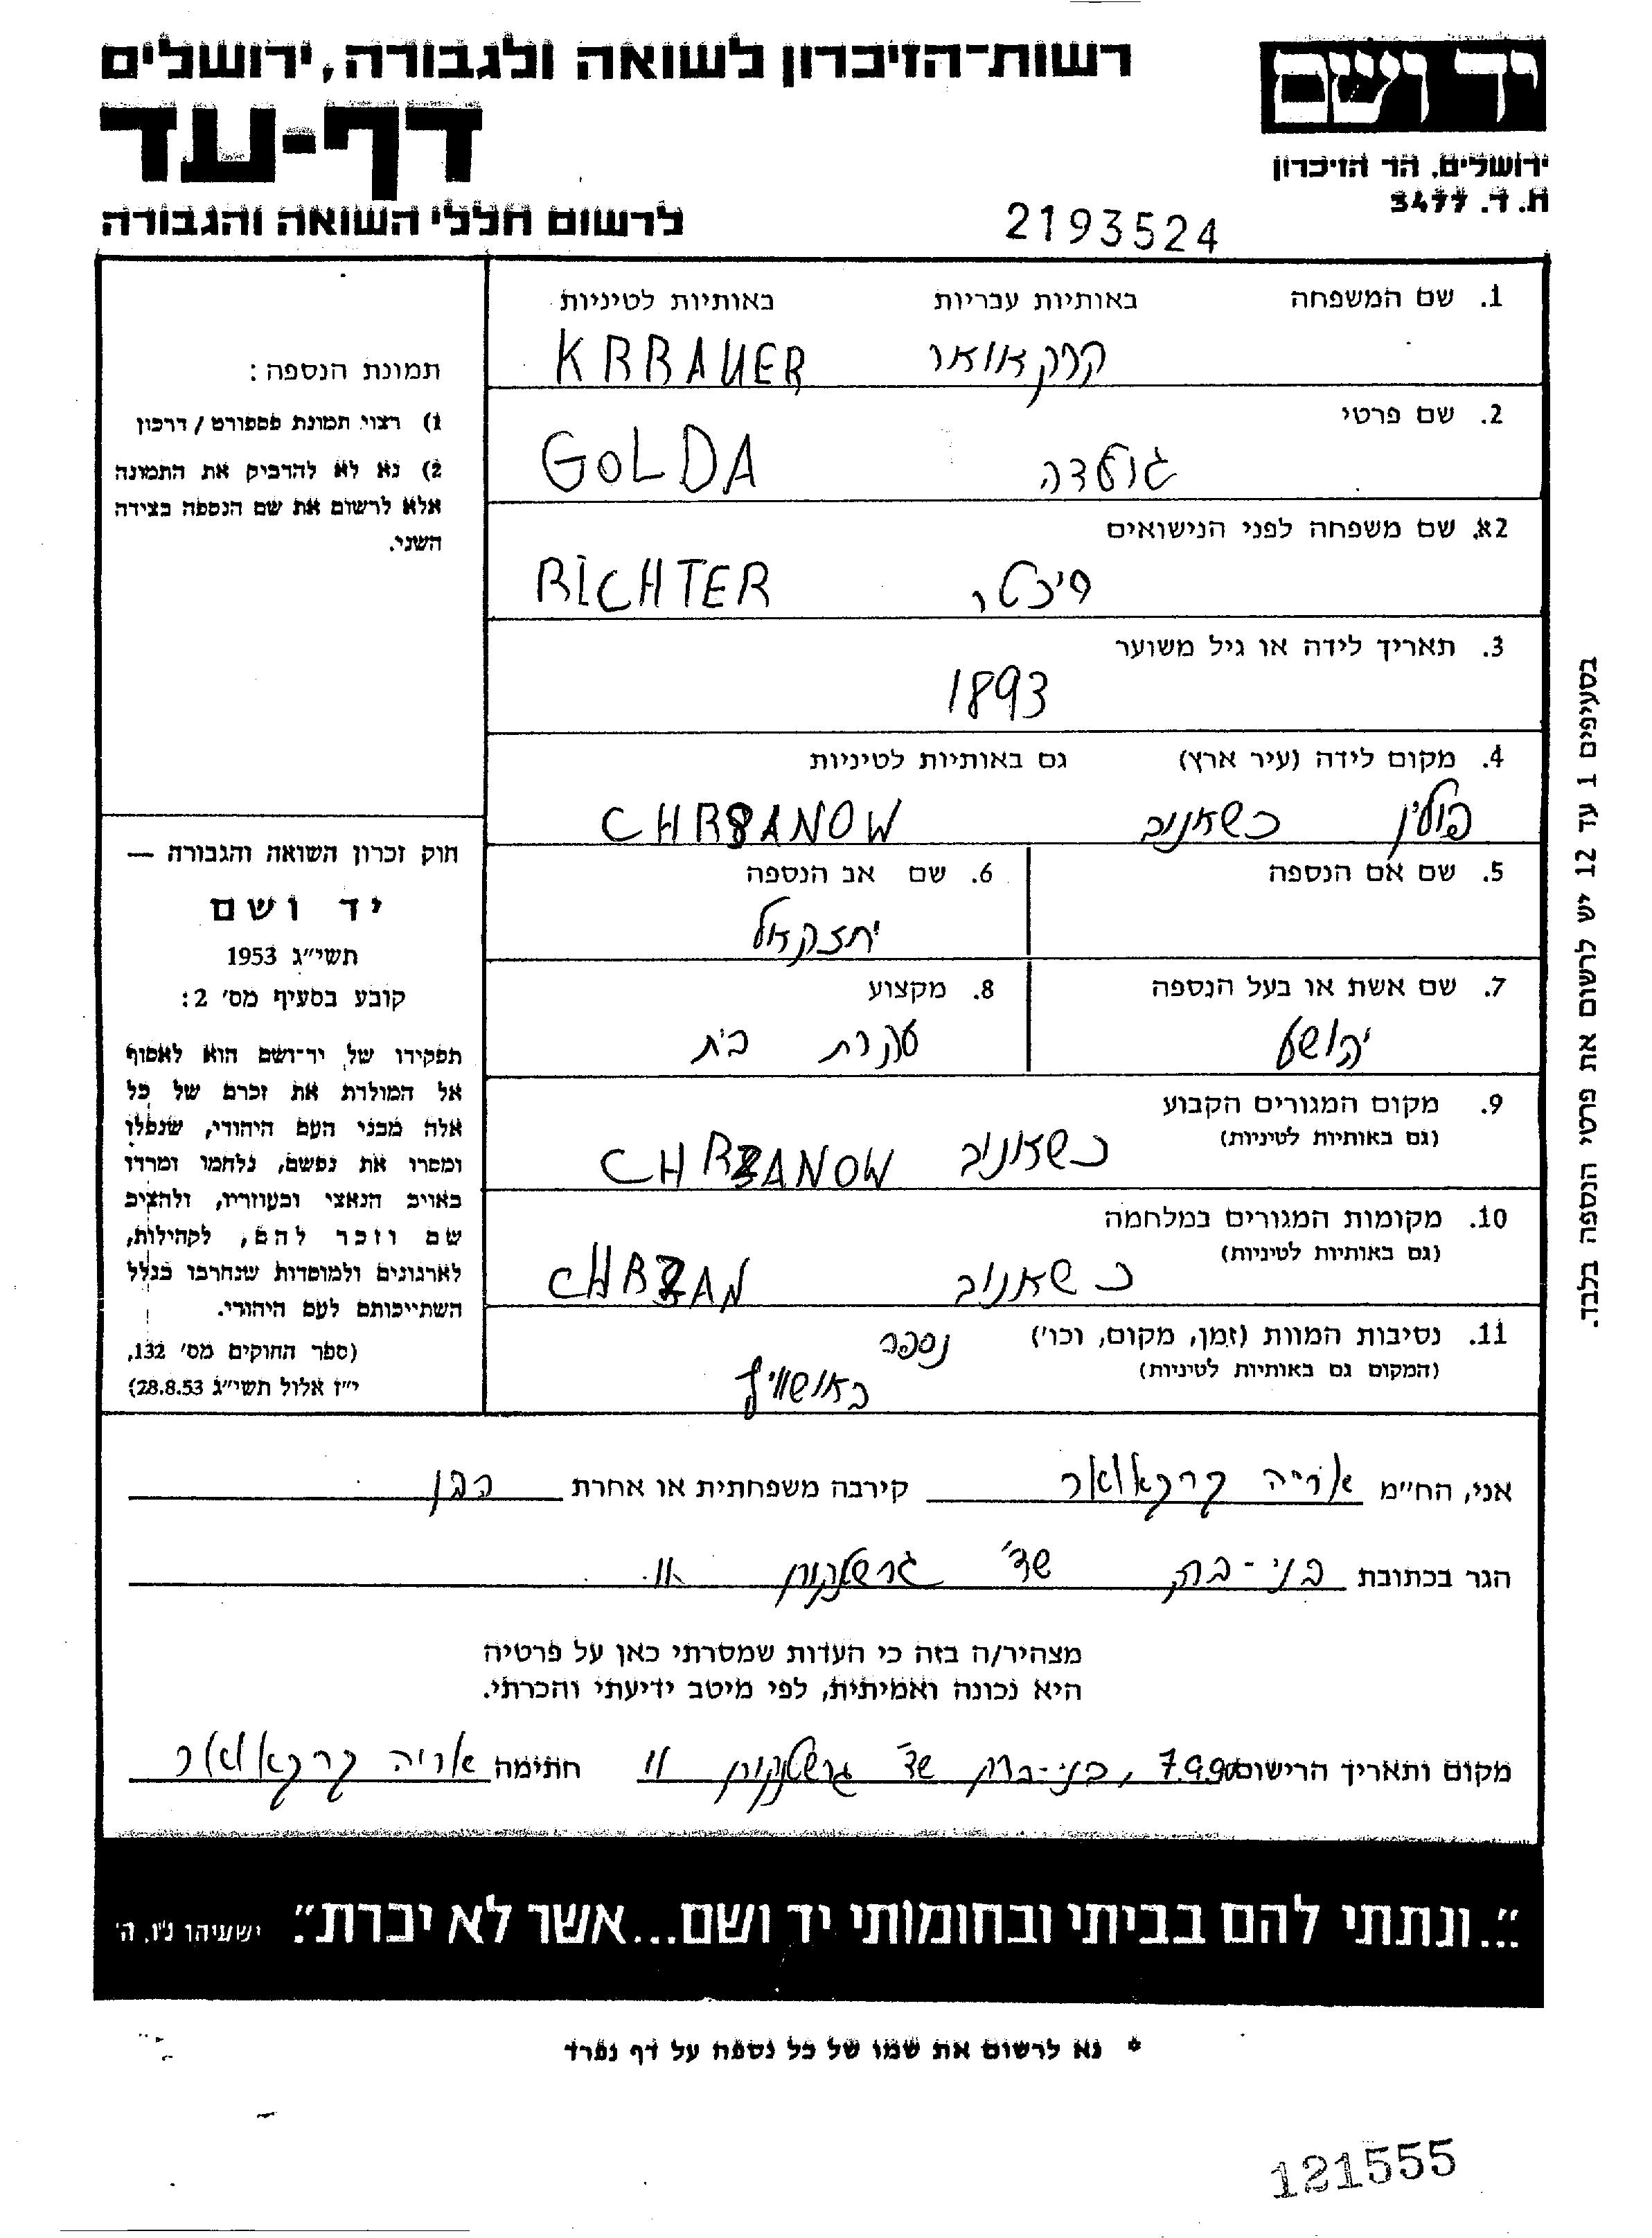 רשות-הזיכרון לשואה ולגבורה, ירושלים
יד ושם
דף-עד
ירושלים, הר הזיכרון
ת. ד. 3477
לרשום חללי השואה והגבורה
2193524
1. שם המשפחה באותיות עבריות באותיות לטיניות
קרקאואר KRRAUER
2. שם פרטי
גולדה GOLDA
2א. שם משפחה לפני הנישואים
ריכטר RICHTER
3. תאריך לידה או גיל משוער
1893
4. מקום לידה (עיר ארץ) גם באותיות לטיניות
פולין כשאנוב CHRZANOW
5. שם אם הנספה
6. שם אב הנספה
יחזקאל
7. שם אשת או בעל הנספה
יהושע
8. מקצוע
עקרת בית
9. מקום המגורים הקבוע
(גם באותיות לטיניות)
כשאנוב CHRZANOW
10. מקומות המגורים במלחמה
(גם באותיות לטיניות)
כשאנוב CHRZAN
11. נסיבות המוות (זמן, מקום, וכו')
(המקום גם באותיות לטיניות)
נספה
באושוויץ
תמונת הנספה:
1) רצוי תמונת פספורט / דרכון
2) נא לא להדביק את התמונה
אלא לרשום את שם הנספה בצידה
השני.
חוק זכרון השואה והגבורה —
יד ושם
תשי"ג 1953
קובע בסעיף מס' 2:
תפקידו של יד-ושם הוא לאסוף
אל המולדת את זכרם של כל
אלה מבני העם היהודי, שנפלו
ומסרו את נפשם, נלחמו ומרדו
באויב הנאצי ובעוזריו, ולהציב
שם וזכר להם, לקהילות,
לארגונים ולמוסדות שנחרבו בגלל
השתייכותם לעם היהודי.
(ספר החוקים מס' 132,
י"ז אלול תשי"ג 28.8.53)
בסעיפים 1 עד 12 יש לרשום את פרטי הנספה בלבד.
אני, הח"מ אריה קרקאואר קירבה משפחתית או אחרת הבן
הגר בכתובת בני-ברק שד' גרשנקורן 11
מצהיר/ה בזה כי העדות שמסרתי כאן על פרטיה
היא נכונה ואמיתית, לפי מיטב ידיעתי והכרתי.
מקום ותאריך הרישום 7.9.90, בני-ברק שד' גרשנקורן 11 חתימה אריה קרקאואר
"...ונתתי להם בביתי ובחומותי יד ושם...אשר לא יכרת". ישעיהו נ"ו, ה'
* נא לרשום את שמו של כל נספה על דף נפרד
121555